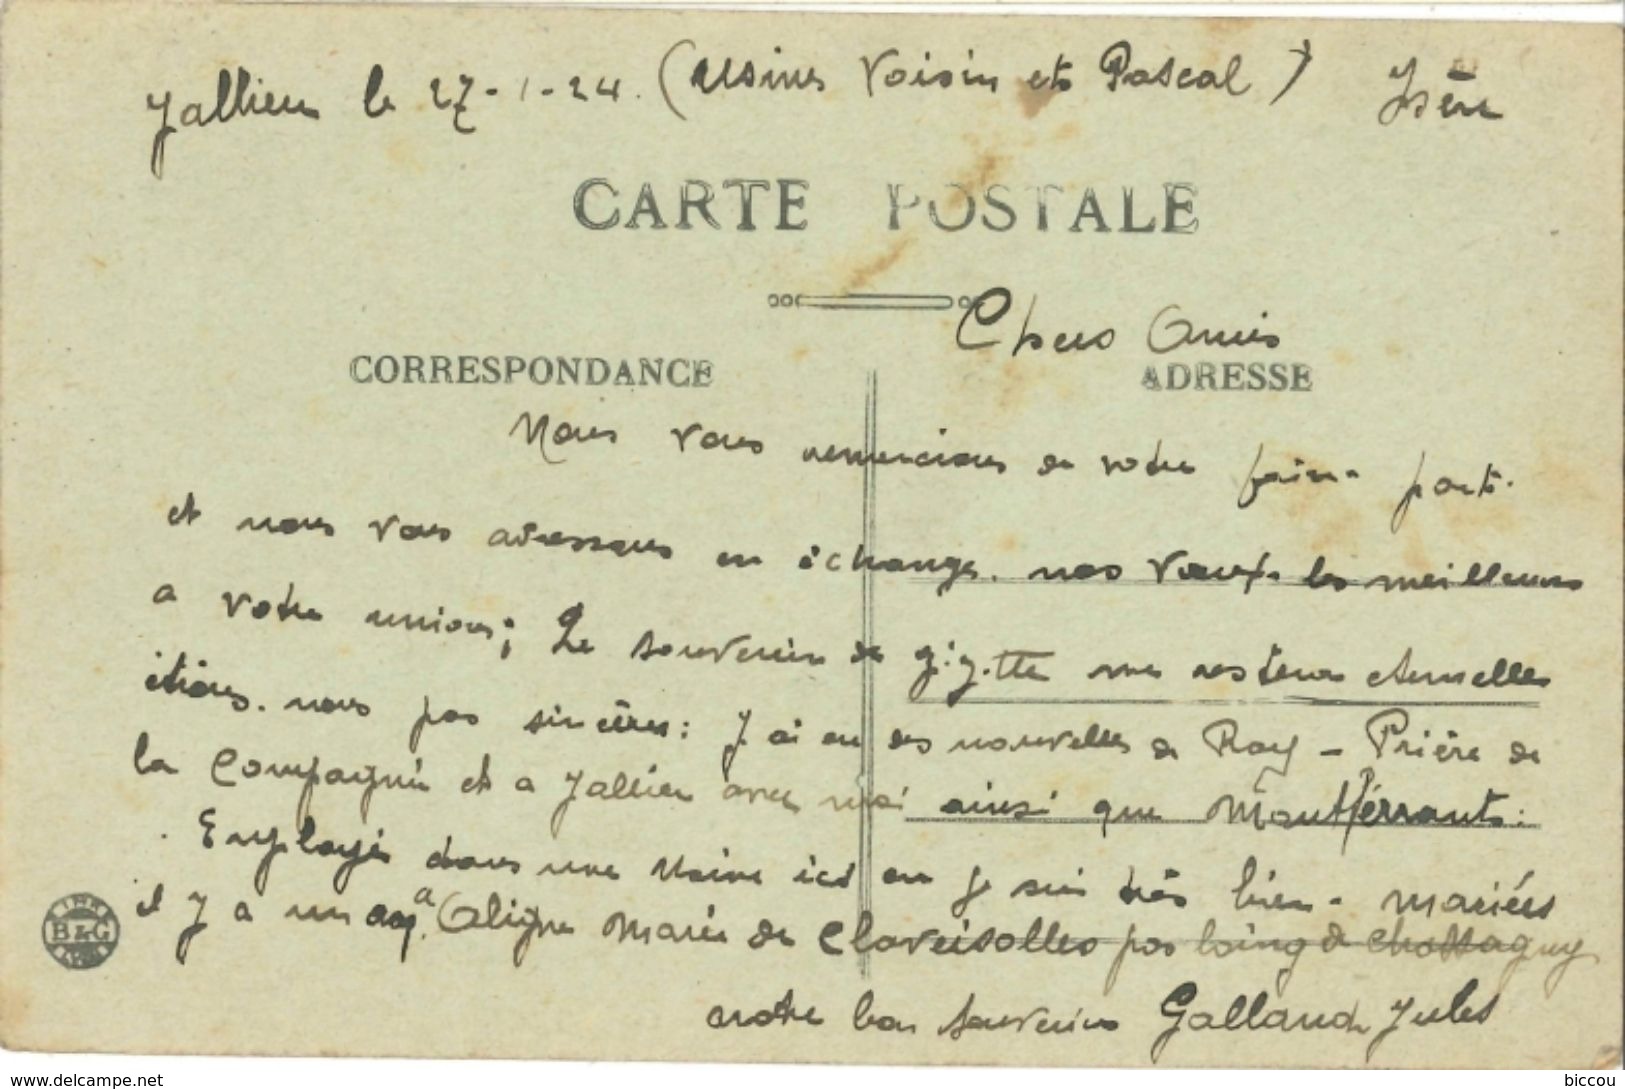 Jallieu le 27-1-24. (Usines Voisin et Pascal) Isère
CARTE POSTALE
Chers Amis
CORRESPONDANCE
ADRESSE
Nous vous remercions de votre faire part.
et nous vous adressons en échange nos Vœux les meilleurs
a votre union; Le souvenir de gigitte me restera eternelle
nous pas sincères: J ai eu des nouvelles de Roy - Prière de
la Compagnie et a Jallieu avec moi ainsi que Montferrants:
Employé dans une Usine ici ou je suis très bien. mariés
il y a un an a Aligne Marie de Claveisolles pas loing de Chassagny
notre bon souvenir Galland Jules
B & G
delcampe.net
biccou